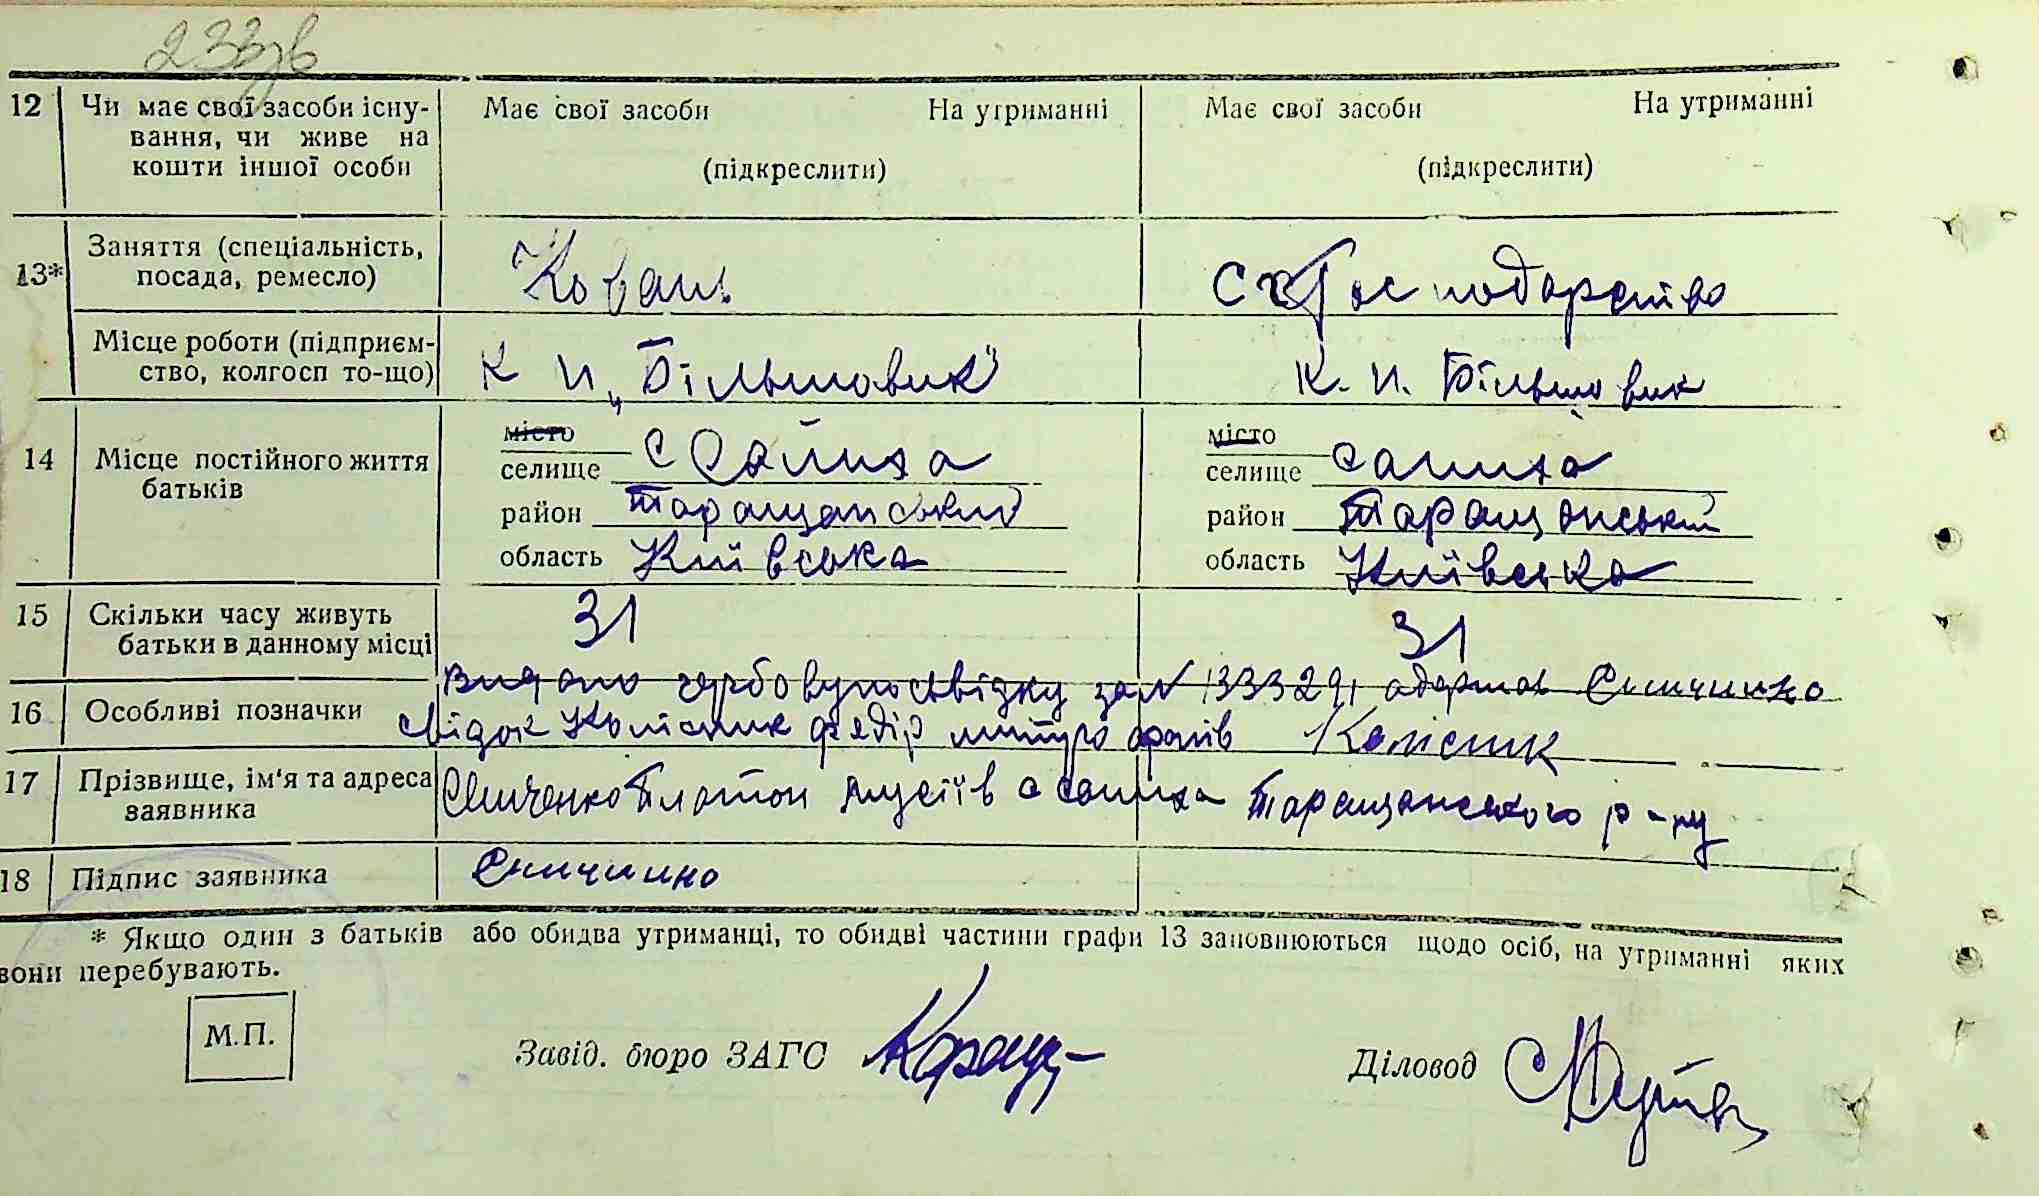 233зв
12 Чи має свої засоби існу- Має свої засоби На утриманні Має свої засоби На утриманні
вання, чи живе на
кошти іншої особи (підкреслити) (підкреслити)
13* Заняття (спеціальність, Коваль С Господарство
посада, ремесло)
Місце роботи (підприєм- К и „Більшовик" К. и. Більшовик
ство, колгосп то-що)
місто місто
14 Місце постійного життя селище с Салиха селище Салиха
батьків район Таращанський район Таращанський
область Київська область Київська
15 Скільки часу живуть 31 31
батьки в данному місці
Видано гербову посвідку за № 133329,
16 Особливі позначки свідок Колісник Федір Колісник
17 Прізвище, ім'я та адреса Платон с Салиха Таращанського р-ну
заявника
18 Підпис заявника
* Якщо один з батьків або обидва утриманці, то обидві частини графи 13 заповнюються щодо осіб, на утриманні яких
вони перебувають.
М.П. Завід. бюро ЗАГС Діловод